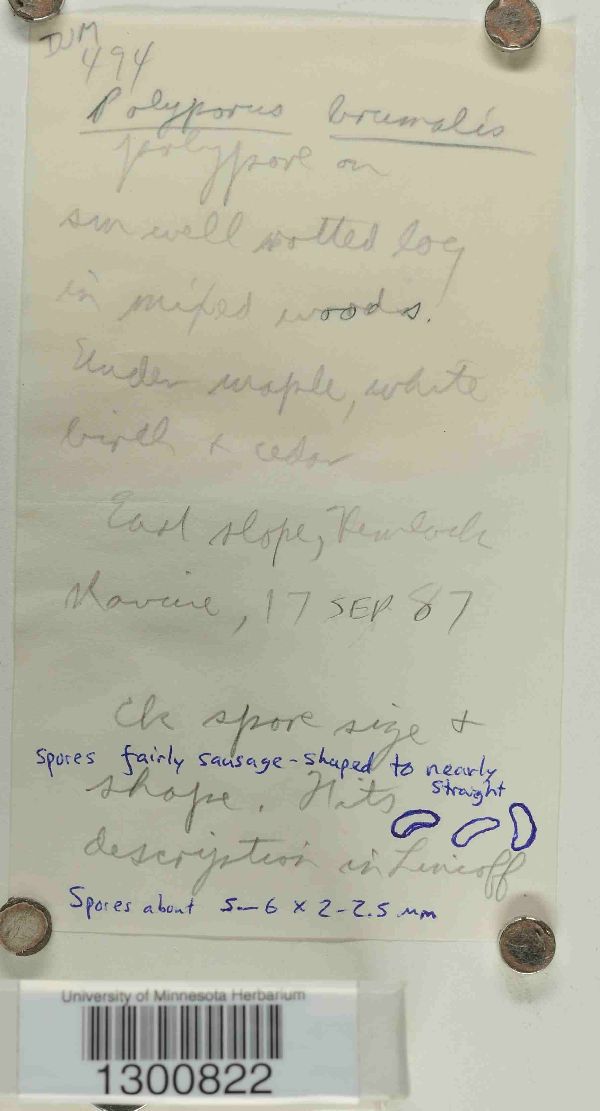 DJM
494
Polyporus brumalis
polypore on
sm well rotted log
in mixed woods.
Under maple, white
birch & cedar
East slope, Hemlock
Ravine, 17 SEP 87
Ck spore size &
Spores fairly sausage-shaped to nearly
straight
shape. Fits
description in Lincoff
Spores about 5-6 x 2-2.5 µm
University of Minnesota Herbarium
1300822